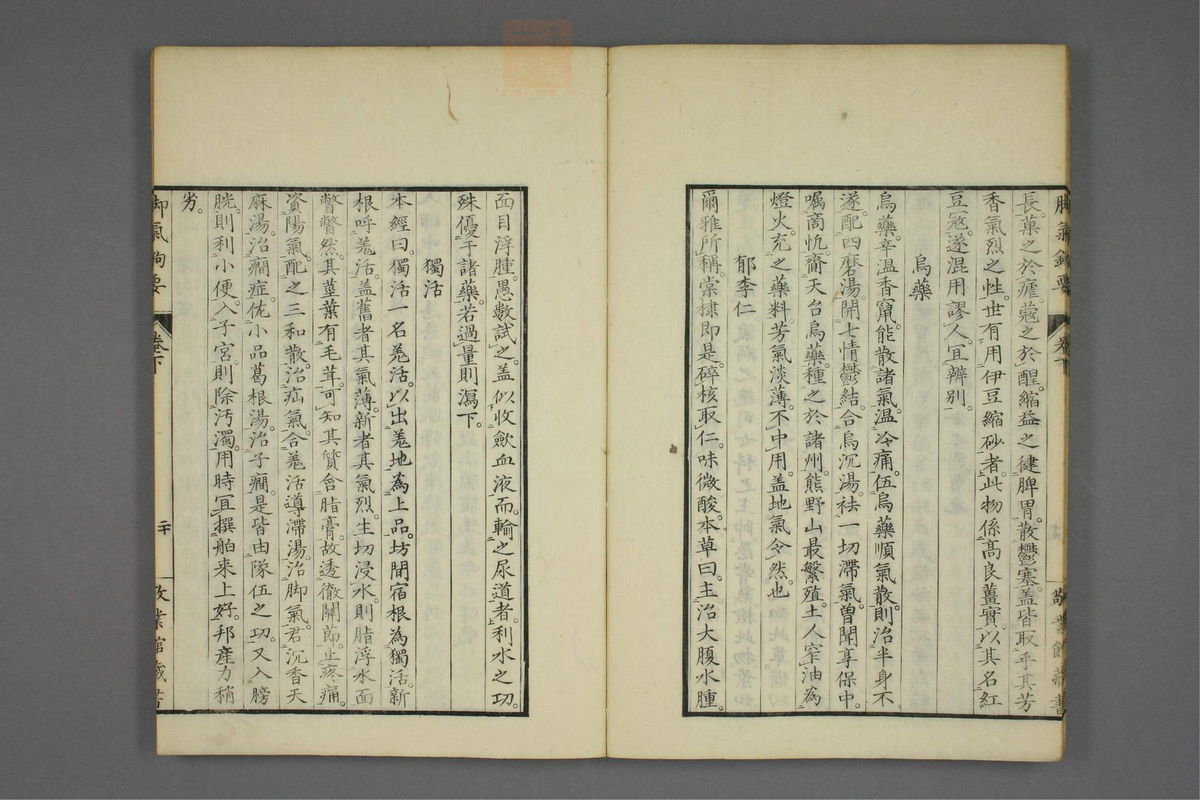 長。菓之於癨。蔻之於醒。縮益之健脾胃。散鬱塞。蓋皆取乎其芳
香氣烈之性。世有用伊豆縮砂者。此物係高良薑實。以其名紅
豆寇。遂混用謬人。冝辨別。
烏藥
烏藥。辛温香竄。能散諸氣。温冷痛。伍烏藥順氣散。則治半身不
遂。配四磨湯。開七情鬱結。合烏沉湯。祛一切滯氣。曽聞享保中。
嘱商忼。齎天台烏藥。種之於諸州。熊野山最繁殖。土人窄油為
燈火。充之藥料。芳氣淡薄。不中用。蓋地氣令然也
郁李仁
爾雅所稱。棠棣即是。碎核取仁。味微酸。本草曰。主治大腹水腫。
面目浮腫。愚數試之。蓋似收歛血液而輸之尿道者。利水之功。
殊優于諸藥。若過量則瀉下。
獨活
本經曰。獨活一名羗活。以出羗地為上品。坊間宿根為獨活。新
根呼羗活。蓋舊者其氣薄。新者其氣烈。生切浸水。則脂浮水面
瞥瞥然。其莖葉有毛茸。可知其質含脂膏。故透徹關節。止疼痛。
資陽氣。配之三和散。治疝氣。合羗活導滯湯。治脚氣。君沉香天
麻湯。治癇症。佐小品葛根湯。治子癇。是皆由隊伍之功。又入膀
胱。則利小便。入子宮。則除汚濁。用時冝撰舶来上好。邦産力稍
劣。
脚氣鉤要
卷下
二十
敬業館藏書